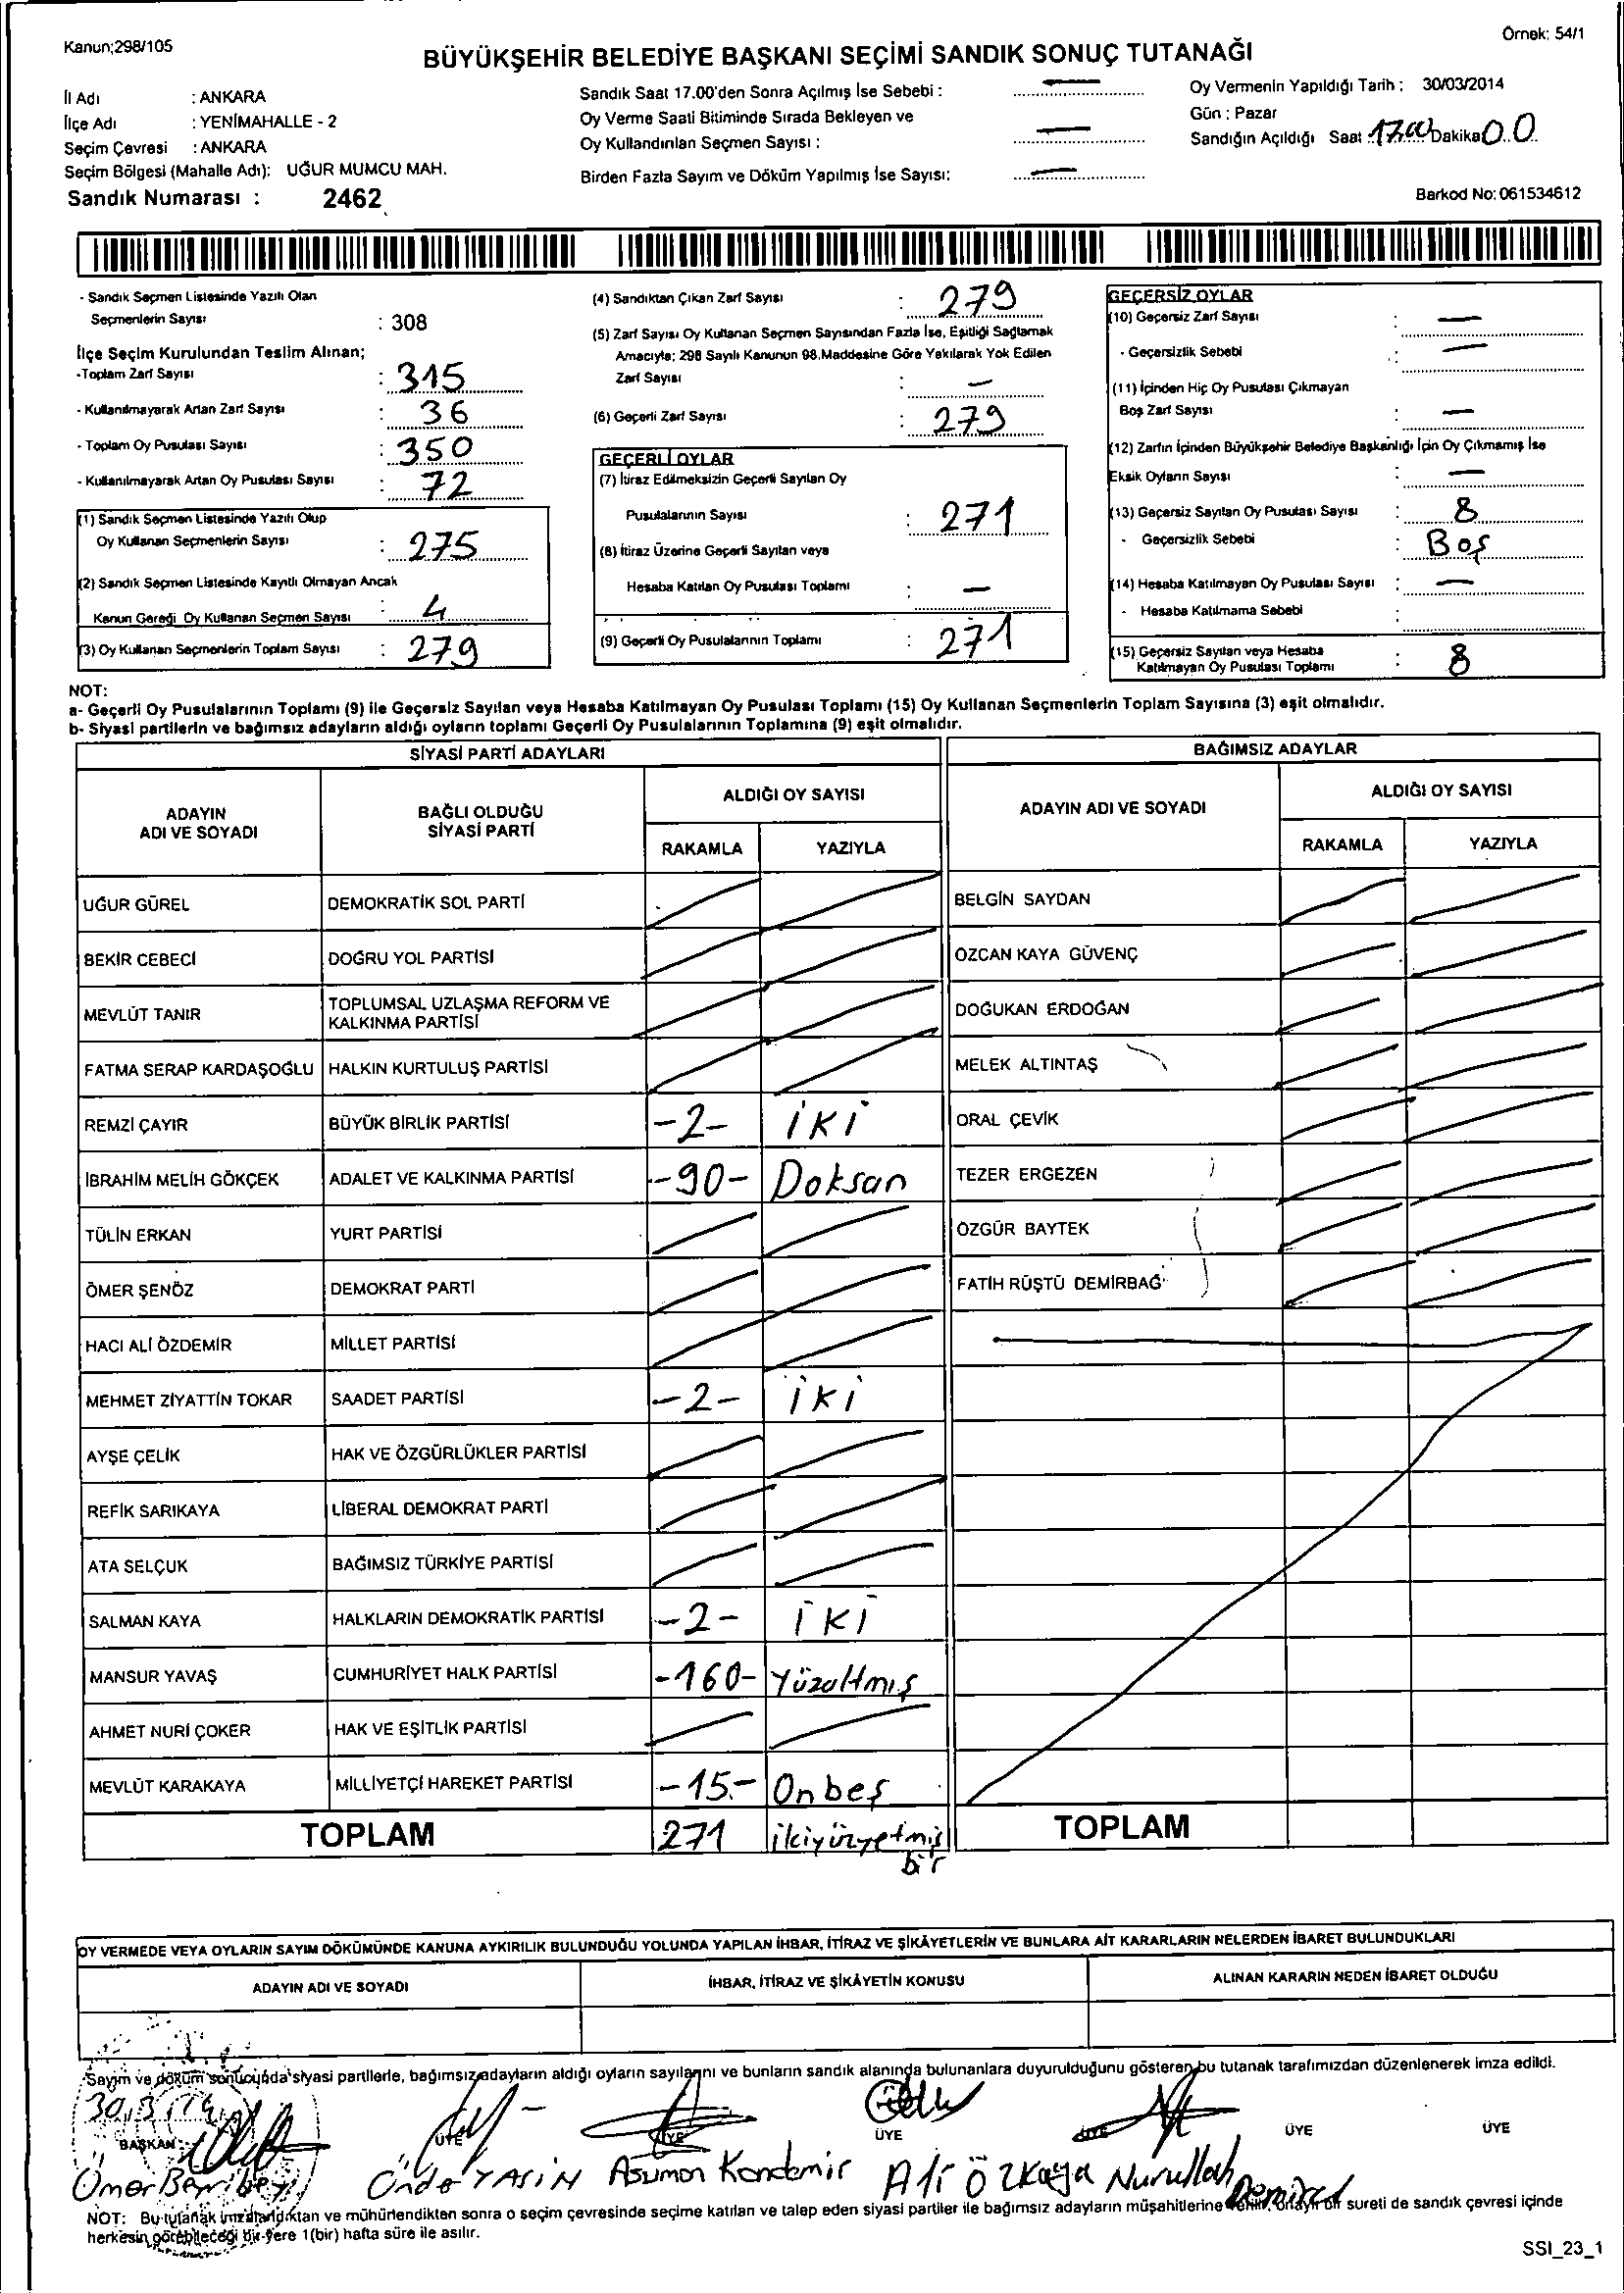 Kanun;298/105
Örnek: 54/1
BÜYÜKŞEHİR BELEDİYE BAŞKANI SEÇİMİ SANDIK SONUÇ TUTANAĞI
İl Adı : ANKARA
İlçe Adı : YENİMAHALLE - 2
Seçim Çevresi : ANKARA
Seçim Bölgesi (Mahalle Adı): UĞUR MUMCU MAH.
Sandık Numarası : 2462
Sandık Saat 17.00'den Sonra Açılmış İse Sebebi : —
Oy Verme Saati Bitiminde Sırada Bekleyen ve
Oy Kullandırılan Seçmen Sayısı : —
Birden Fazla Sayım ve Döküm Yapılmış İse Sayısı: —
Oy Vermenin Yapıldığı Tarih : 30/03/2014
Gün : Pazar
Sandığın Açıldığı Saat 17.00 Dakika 00
Barkod No: 061534612
- Sandık Seçmen Listesinde Yazılı Olan
Seçmenlerin Sayısı : 308
İlçe Seçim Kurulundan Teslim Alınan;
-Toplam Zarf Sayısı : 315
- Kullanılmayarak Artan Zarf Sayısı : 36
- Toplam Oy Pusulası Sayısı : 350
- Kullanılmayarak Artan Oy Pusulası Sayısı : 72
(1) Sandık Seçmen Listesinde Yazılı Olup
Oy Kullanan Seçmenlerin Sayısı : 275
(2) Sandık Seçmen Listesinde Kayıtlı Olmayan Ancak
Kanun Gereği Oy Kullanan Seçmen Sayısı : 4
(3) Oy Kullanan Seçmenlerin Toplam Sayısı : 279
(4) Sandıktan Çıkan Zarf Sayısı : 279
(5) Zarf Sayısı Oy Kullanan Seçmen Sayısından Fazla İse, Eşitliği Sağlamak
Amacıyla; 298 Sayılı Kanunun 98.Maddesine Göre Yakılarak Yok Edilen
Zarf Sayısı : —
(6) Geçerli Zarf Sayısı : 279
GEÇERLİ OYLAR
(7) İtiraz Edilmeksizin Geçerli Sayılan Oy
Pusulalarının Sayısı : 271
(8) İtiraz Üzerine Geçerli Sayılan veya
Hesaba Katılan Oy Pusulası Toplamı : —
(9) Geçerli Oy Pusulalarının Toplamı : 271
GEÇERSİZ OYLAR
(10) Geçersiz Zarf Sayısı : —
- Geçersizlik Sebebi : —
(11) İçinden Hiç Oy Pusulası Çıkmayan
Boş Zarf Sayısı : —
(12) Zarfın İçinden Büyükşehir Belediye Başkanlığı İçin Oy Çıkmamış İse
Eksik Oyların Sayısı : —
(13) Geçersiz Sayılan Oy Pusulası Sayısı : 8
- Geçersizlik Sebebi : Boş
(14) Hesaba Katılmayan Oy Pusulası Sayısı : —
- Hesaba Katılmama Sebebi :
(15) Geçersiz Sayılan veya Hesaba
Katılmayan Oy Pusulası Toplamı : 8
NOT:
a- Geçerli Oy Pusulalarının Toplamı (9) ile Geçersiz Sayılan veya Hesaba Katılmayan Oy Pusulası Toplamı (15) Oy Kullanan Seçmenlerin Toplam Sayısına (3) eşit olmalıdır.
b- Siyasi partilerin ve bağımsız adayların aldığı oyların toplamı Geçerli Oy Pusulalarının Toplamına (9) eşit olmalıdır.
SİYASİ PARTİ ADAYLARI
ADAYIN
ADI VE SOYADI
BAĞLI OLDUĞU
SİYASİ PARTİ
ALDIĞI OY SAYISI
RAKAMLA YAZIYLA
UĞUR GÜREL DEMOKRATİK SOL PARTİ
BEKİR CEBECİ DOĞRU YOL PARTİSİ
MEVLÜT TANIR TOPLUMSAL UZLAŞMA REFORM VE
KALKINMA PARTİSİ
FATMA SERAP KARDAŞOĞLU HALKIN KURTULUŞ PARTİSİ
REMZİ ÇAYIR BÜYÜK BİRLİK PARTİSİ -2- iKi
İBRAHİM MELİH GÖKÇEK ADALET VE KALKINMA PARTİSİ -90- Doksan
TÜLİN ERKAN YURT PARTİSİ
ÖMER ŞENÖZ DEMOKRAT PARTİ
HACI ALİ ÖZDEMİR MİLLET PARTİSİ
MEHMET ZİYATTİN TOKAR SAADET PARTİSİ -2- iKi
AYŞE ÇELİK HAK VE ÖZGÜRLÜKLER PARTİSİ
REFİK SARIKAYA LİBERAL DEMOKRAT PARTİ
ATA SELÇUK BAĞIMSIZ TÜRKİYE PARTİSİ
SALMAN KAYA HALKLARIN DEMOKRATİK PARTİSİ -2- iKi
MANSUR YAVAŞ CUMHURİYET HALK PARTİSİ -160- Yüzaltmış
AHMET NURİ ÇOKER HAK VE EŞİTLİK PARTİSİ
MEVLÜT KARAKAYA MİLLİYETÇİ HAREKET PARTİSİ -15- Onbeş
TOPLAM 271 ikiyüzyetmiş
bir
BAĞIMSIZ ADAYLAR
ADAYIN ADI VE SOYADI
ALDIĞI OY SAYISI
RAKAMLA YAZIYLA
BELGİN SAYDAN
ÖZCAN KAYA GÜVENÇ
DOĞUKAN ERDOĞAN
MELEK ALTINTAŞ
ORAL ÇEVİK
TEZER ERGEZEN
ÖZGÜR BAYTEK
FATİH RÜŞTÜ DEMİRBAĞ
TOPLAM
OY VERMEDE VEYA OYLARIN SAYIM DÖKÜMÜNDE KANUNA AYKIRILIK BULUNDUĞU YOLUNDA YAPILAN İHBAR, İTİRAZ VE ŞİKÂYETLERİN VE BUNLARA AİT KARARLARIN NELERDEN İBARET BULUNDUKLARI
ADAYIN ADI VE SOYADI
İHBAR, İTİRAZ VE ŞİKÂYETİN KONUSU
ALINAN KARARIN NEDEN İBARET OLDUĞU
Sayım ve döküm sonucunda siyasi partilerle, bağımsız adayların aldığı oyların sayılarını ve bunların sandık alanında bulunanlara duyurulduğunu gösteren bu tutanak tarafımızdan düzenlenerek imza edildi.
30.3.14
BAŞKAN ÜYE ÜYE ÜYE ÜYE ÜYE ÜYE
Ömer YASİN Asuman Kandemir Ali Özkaya Nurullah Demirel
NOT: Bu tutanak imzalandıktan ve mühürlendikten sonra o seçim çevresinde seçime katılan ve talep eden siyasi partiler ile bağımsız adayların müşahitlerine verilir, onaylı bir sureti de sandık çevresi içinde
herkesin görebileceği bir yere 1(bir) hafta süre ile asılır.
SSI_23_1